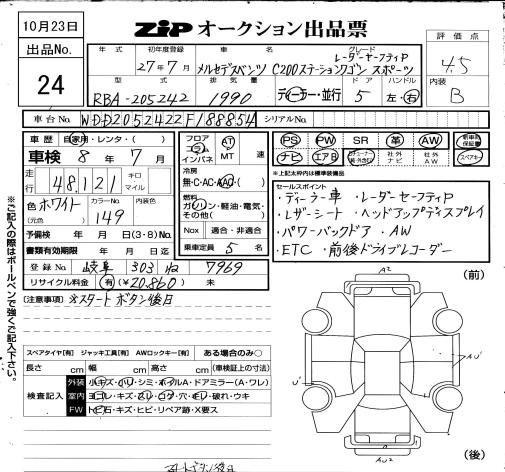 10月23日
ZIP オークション出品票
出品No.
24
年式 初年度登録 車名 グレード
27年7月 メルセデスベンツ C200ステーションワゴン スポーツ
レーダーセーフティP
評価点
4.5
内装
B
型式 排気量 ドア ハンドル
RBA-205242 1990 ディーラー・並行 5 左・右
車台No. WDD2052422F188854 シリアルNo.
車歴 自家用・レンタ・( )
車検 8年 7月
走行 48,121 キロ マイル
色 ホワイト カラーNo. 149 内装色
(元色)
予備検 年 月 日(3・8)No.
書類有効期限 年 月 日迄
登録No. 岐阜 303 7969
リサイクル料金 有(¥20,860) 未
フロア インパネ AT MT 速
冷房
無・C・AC・AAC・( )
燃料
ガソリン・軽油・電気・その他( )
Nox 適合・非適合
乗車定員 5名
PS PW SR 革 AW 新車時保証書
ナビ エアB 社外ナビ 社外AW スペアキー
※上記太枠内は標準装備品
セールスポイント
・ディーラー車 ・レーダーセーフティP
・レザーシート ・ヘッドアップディスプレイ
・パワーバックドア ・AW
・ETC ・前後ドライブレコーダー
(注意事項) スタートボタン後日
スペアタイヤ[有] ジャッキ工具[有] AWロックキー[有] ある場合のみ〇
長さ cm 幅 cm 高さ cm (車検証上の寸法)
検査記入
外装 小キズ・ハリ・シミ・ホイールA・ドアミラー(A・ワレ)
室内 ヨゴレ・キズ・スレ・コゲ・穴・モレ・破れ・ウキ
FW トビ石・キズ・ヒビ・リペア跡・X要ス
スタートボタン後日
※ご記入の際はボールペンで強くご記入下さい。
(前)
A2
U'
AU'
AU2
(後)